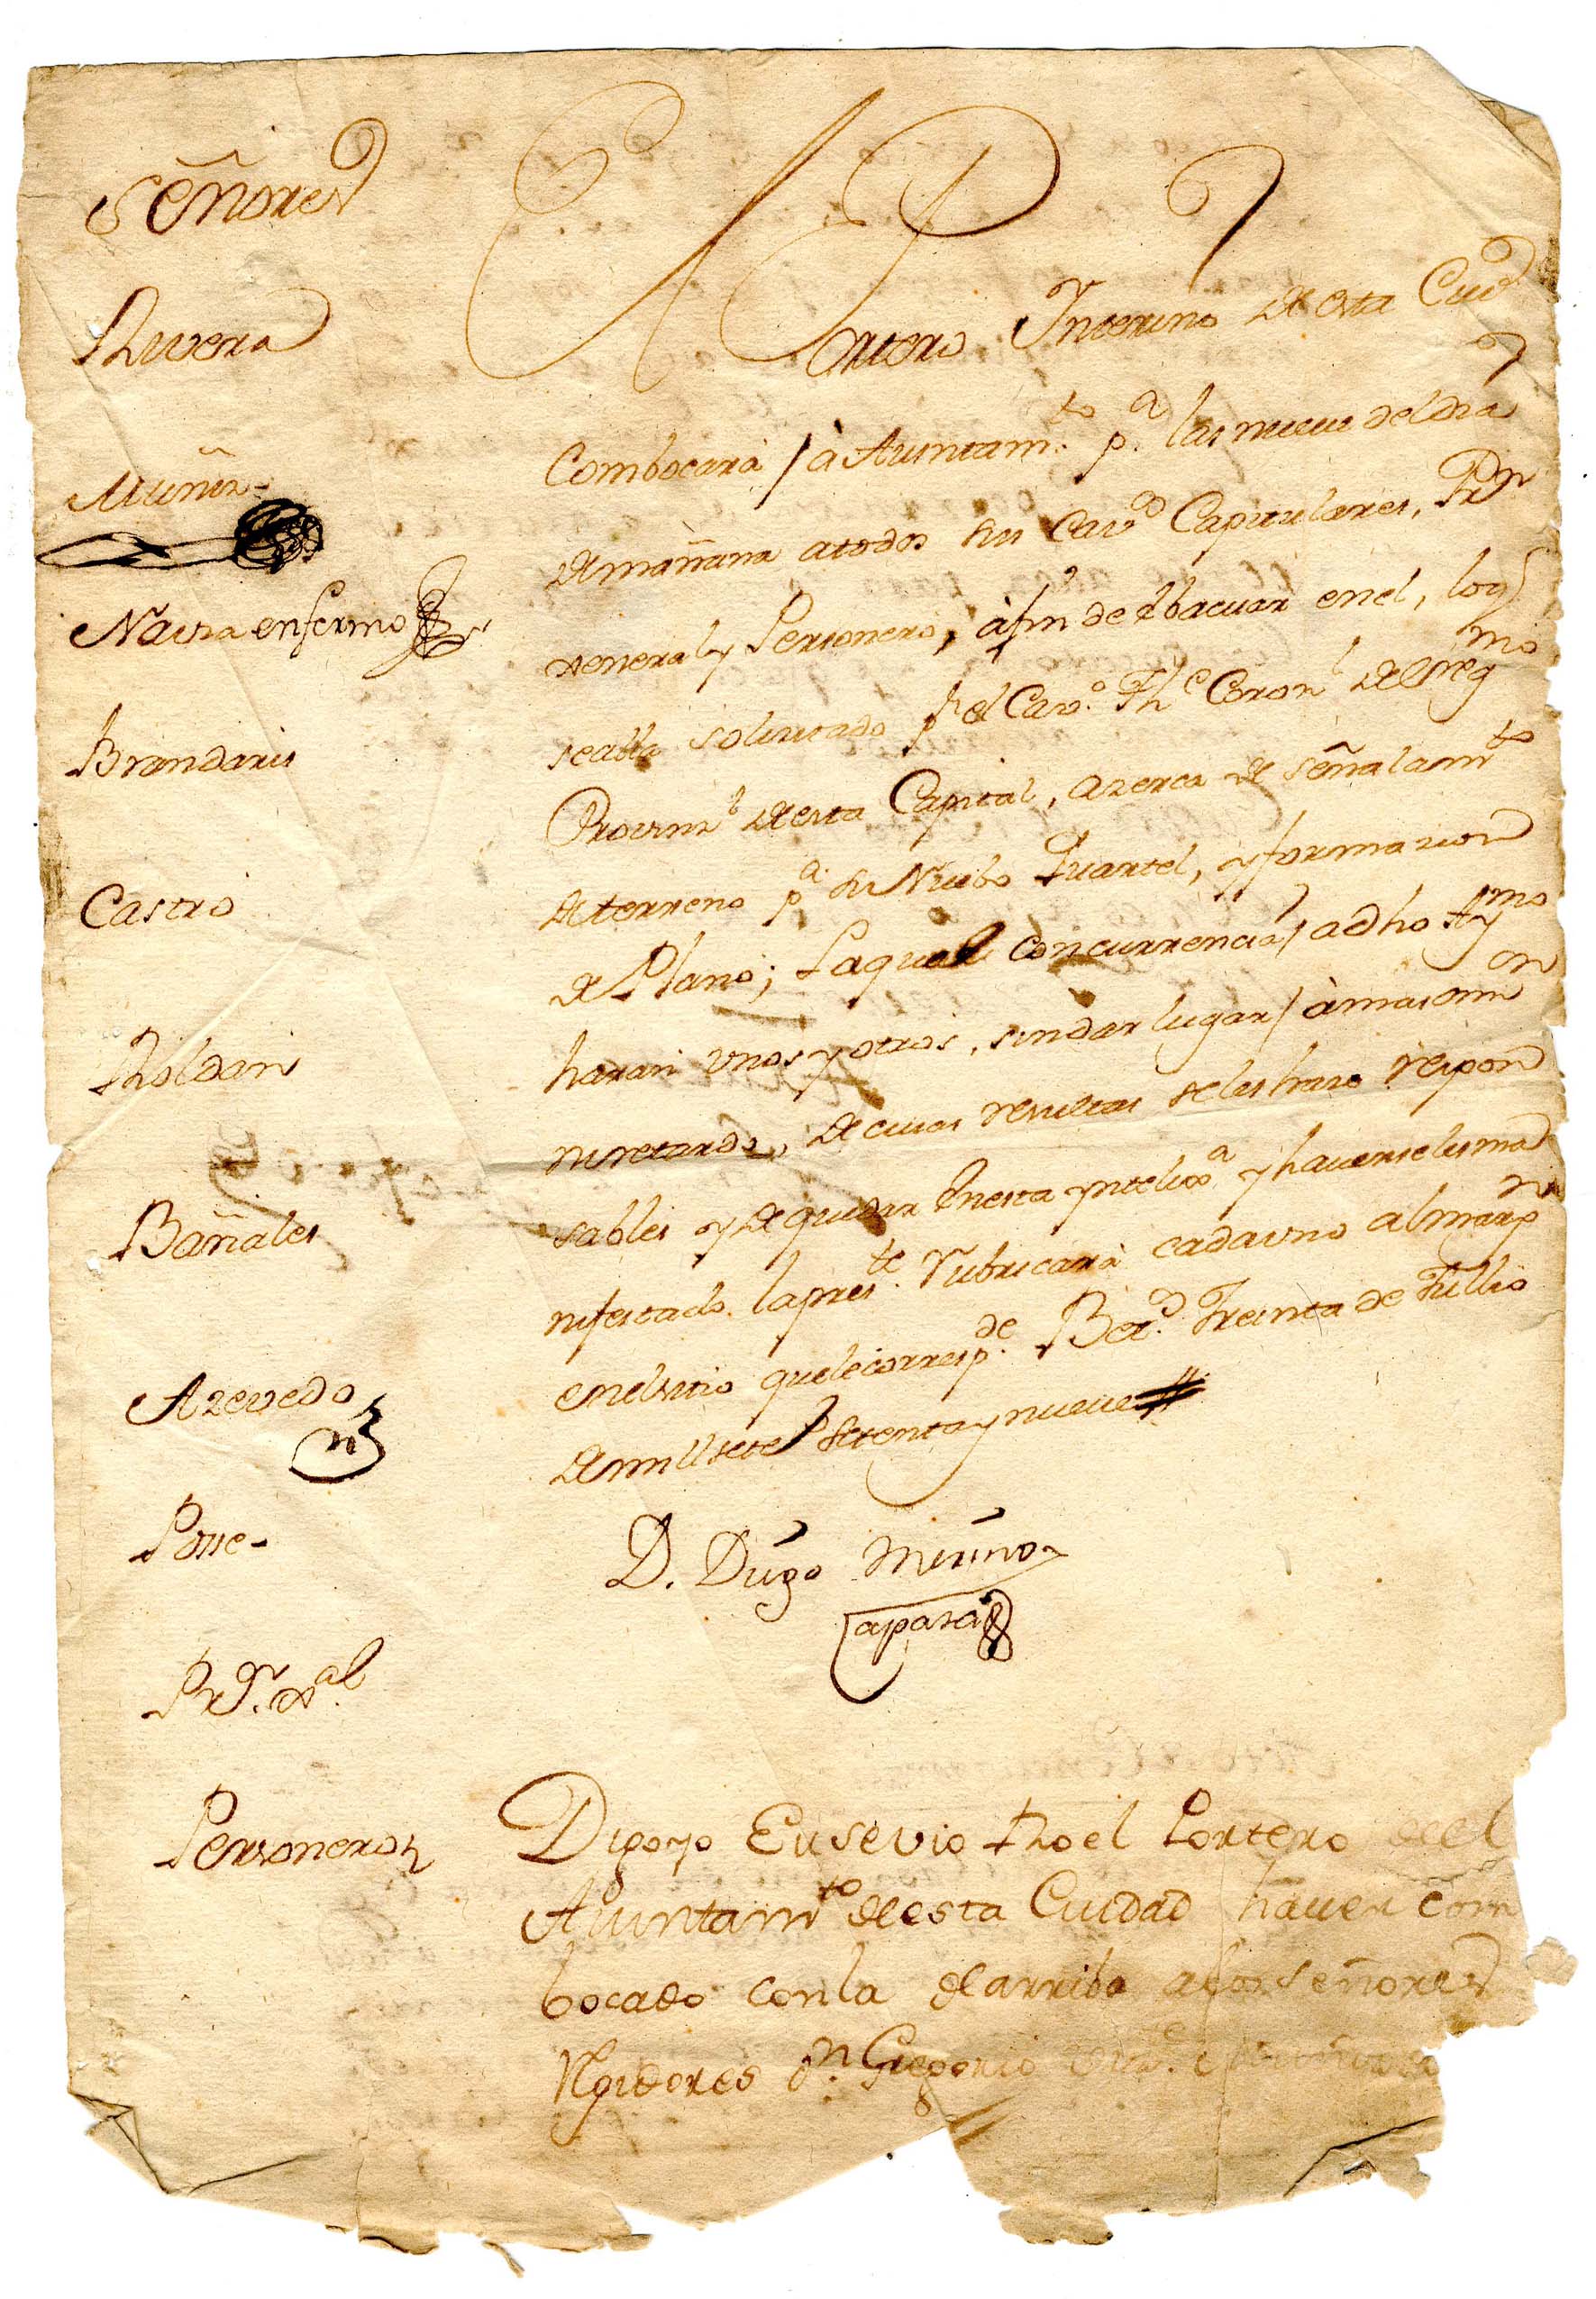 Señores
Rivera
Muñiz
Navia enfermo
Brandaris
Castro
Roldan
Bañales
Azevedo
Posse
Pr.or Gral
Personero
El Portero Interino de esta Ciud
Combocará / á Aiuntam.to p.a las nueve del dia
de mañana a todos sus Cav.os Capitulares, Pr.or
General y Personero, á fin de ebacuar en el, lo q.e
se alla solicitado p.r el Cav.o Th.e Coron.l del reg.mto
Provinz.l de esta Capital, azerca de señalam.to
de terreno p.a su Nuebo Quartel, y formazion
de Plano; Laqual concurrencia / a dho Ay.mto
harán unos y otros, sin dar lugar / á mas om
ni retardo, de cuias resultas se les hace respon
sables y de quedar en esta yntelig.a y haverseles ma
nifestado la pres.te rubricará cada uno al marg.n
en el sitio que le corresp.de Bet.os Treinta de Jullio
de mill sete.s setenta y nueve
D. Diego Muñoz
aparic
Digo yo Eusevio Roel Portero de el
Aiuntam.to de esta Ciudad / haver com
bocado con la de arriba a los señores
Rejidores D.n Gregorio